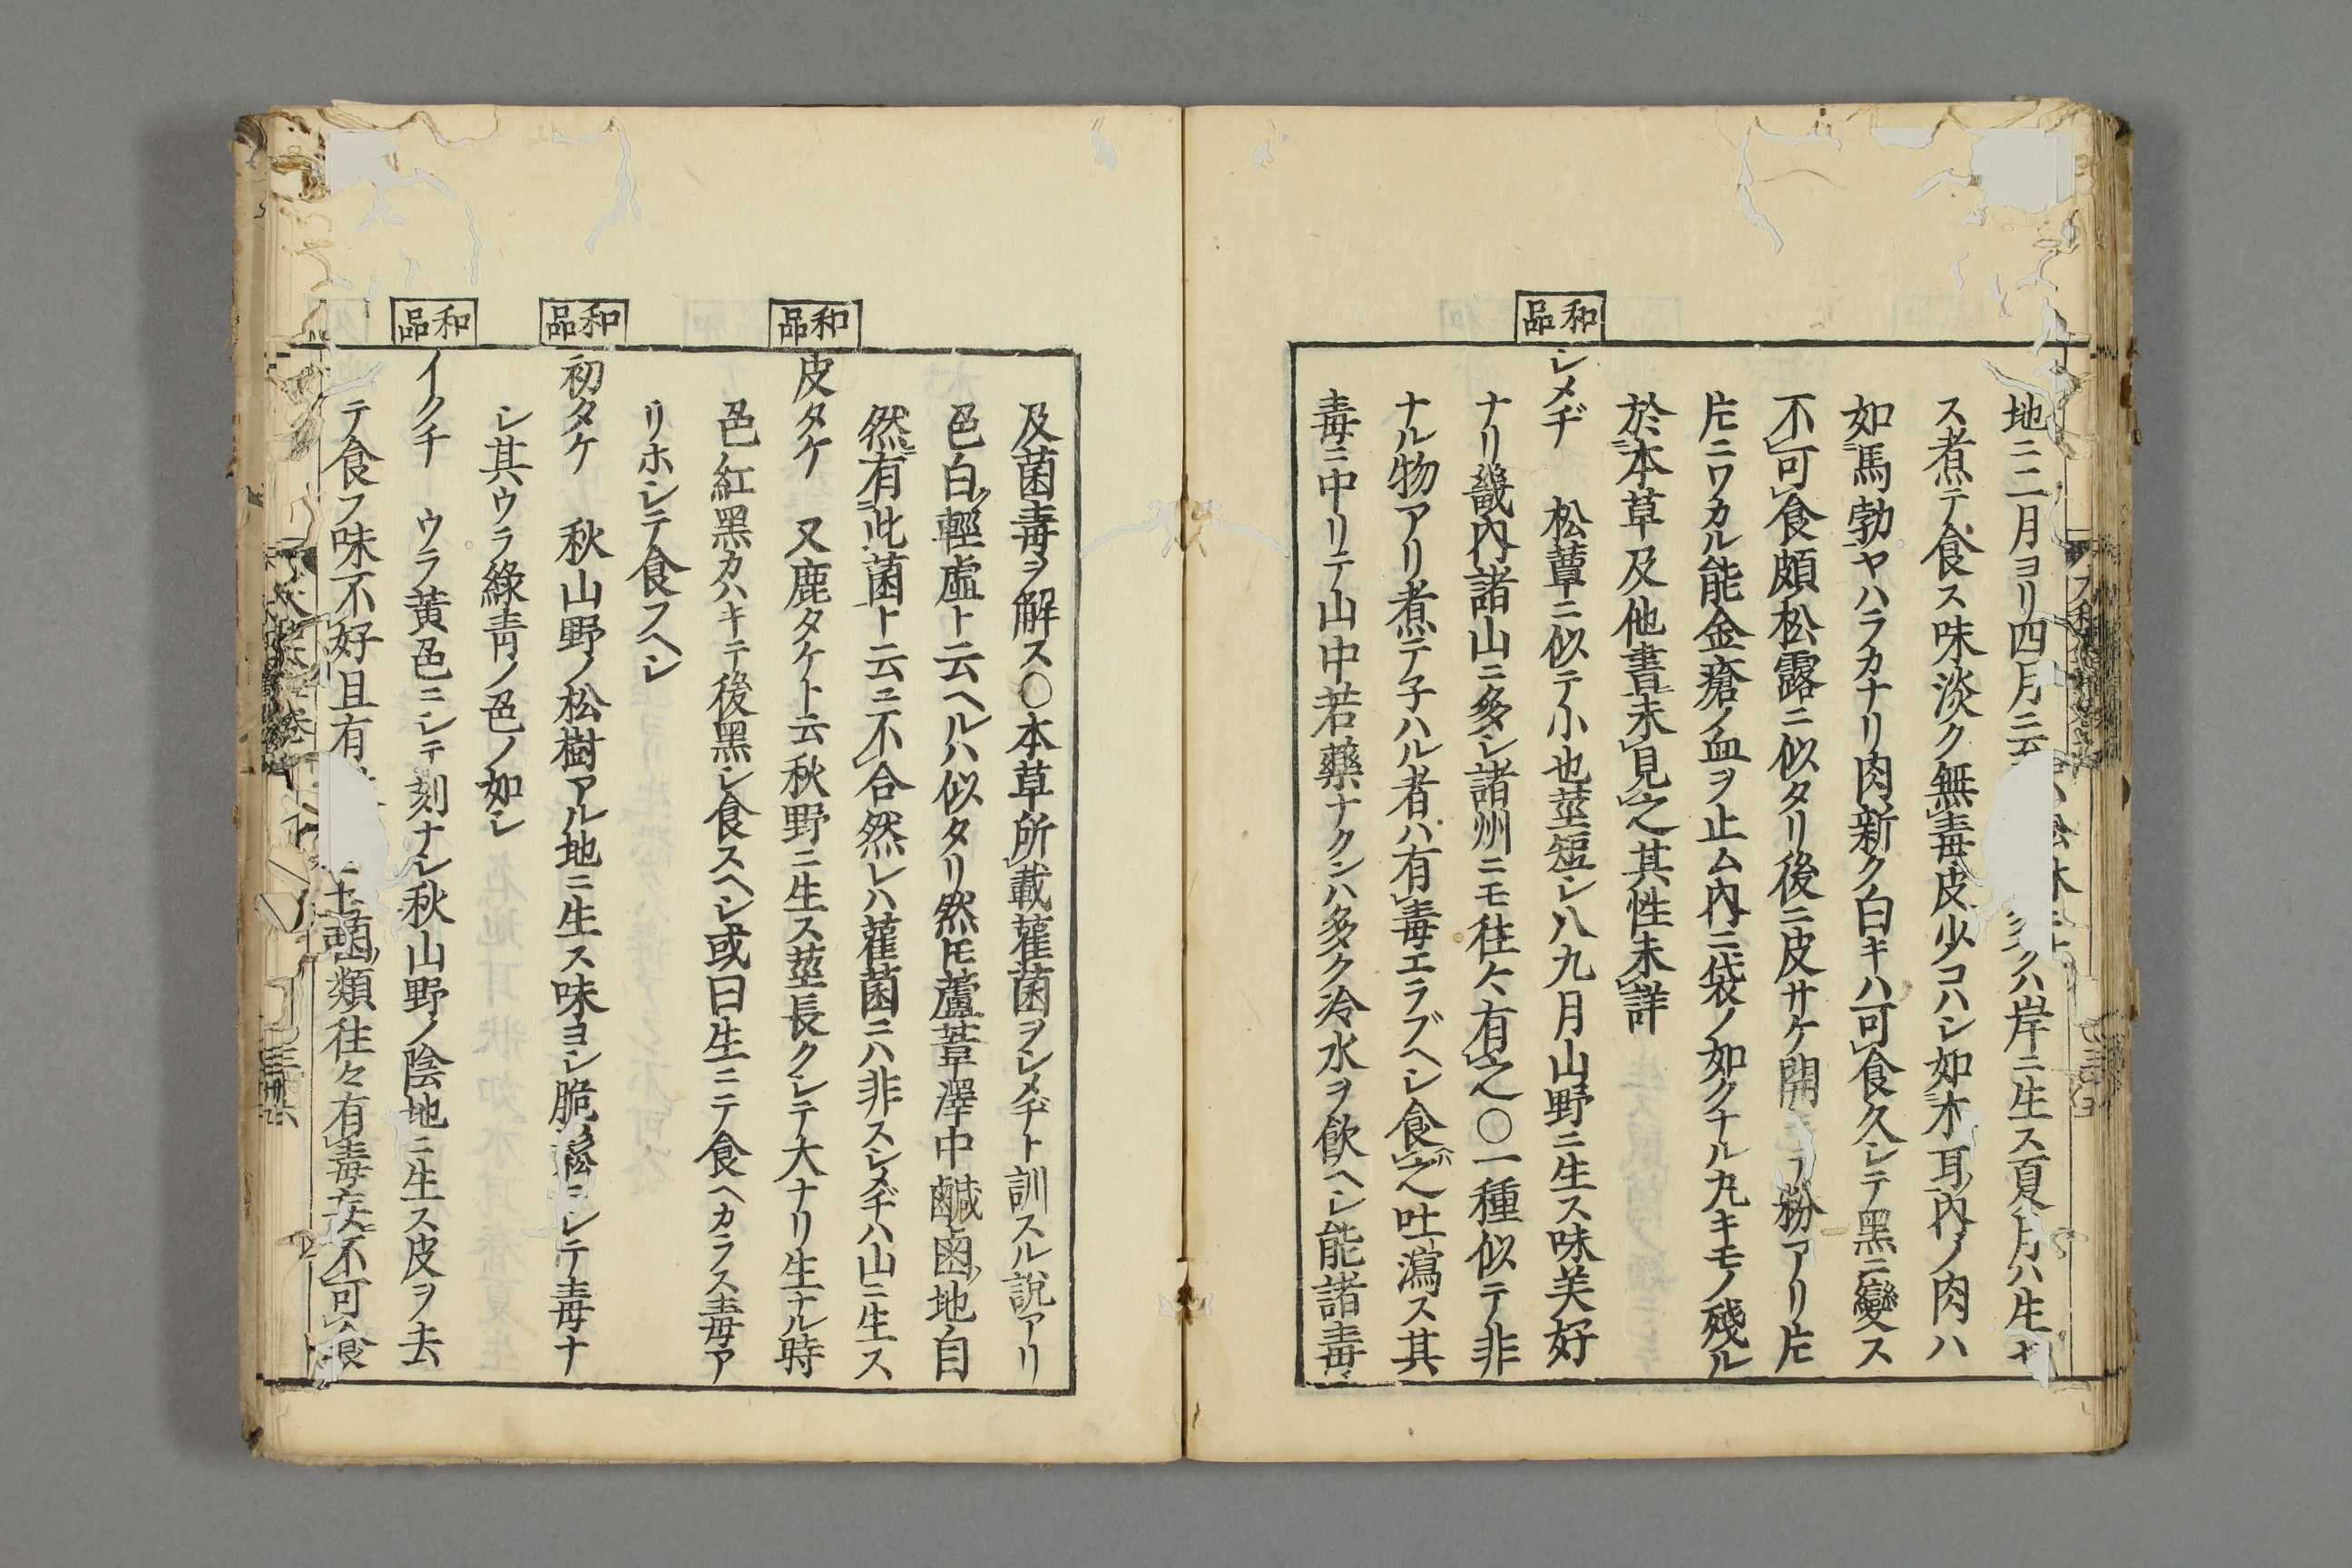 地ニ二月ヨリ四月ニ
クハ岸ニ生ス夏月ハ生セ
ス煮テ食ス味淡ク無毒皮少コハシ如木耳内ノ肉ハ
如馬勃ヤハラカナリ肉新ク白キハ可食久シテ黑ニ變ス
不可食頗松露ニ似タリ後ニ皮サケ開
粉アリ片
片ニワカル能金瘡ノ血ヲ止ム内ニ袋ノ如クナル丸キモノ殘ル
於本草及他書未見之其性未詳
和品
シメヂ 松蕈ニ似テ小也莖短シ八九月山野ニ生ス味美好
ナリ畿内諸山ニ多シ諸州ニモ往々有之〇一種似テ非
ナル物アリ煮テ子ハル者ハ有毒エラブヘシ食之吐瀉ス其
毒ニ中リテ山中若藥ナクンハ多ク冷水ヲ飲ヘシ能諸毒
及菌毒ヲ解ス〇本草所載雚菌ヲシメヂト訓スル説アリ
色白輕虛ト云ヘルハ似タリ然𪜈蘆葦澤中鹹鹵地自
然有此菌ト云ニ不合然レハ雚菌ニハ非スシメヂハ山ニ生ス
和品
皮タケ 又鹿タケト云秋野ニ生ス莖長クシテ大ナリ生ナル時
色紅黑カハキテ後黑シ食スヘシ或曰生ニテ食ヘカラス毒ア
リホシテ食フヘシ
和品
初タケ 秋山野ノ松樹アル地ニ生ス味ヨシ脆鬆ニシテ毒ナ
シ其ウラ綠靑ノ色ノ如シ
和品
イクチ ウラ黃色ニシテ刻ナシ秋山野ノ陰地ニ生ス皮ヲ去
テ食フ味不好且有
類往々有毒妄不可食